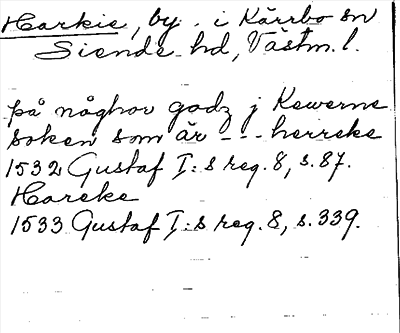 Harkie, by. i Kärrbo sn
Siende hd, Västm. l.
på någhor godz j Kewerne
soken som är --- herreke
1532 Gustaf I:s reg. 8, s. 87.
Hareke
1533 Gustaf I:s reg. 8, s. 339.